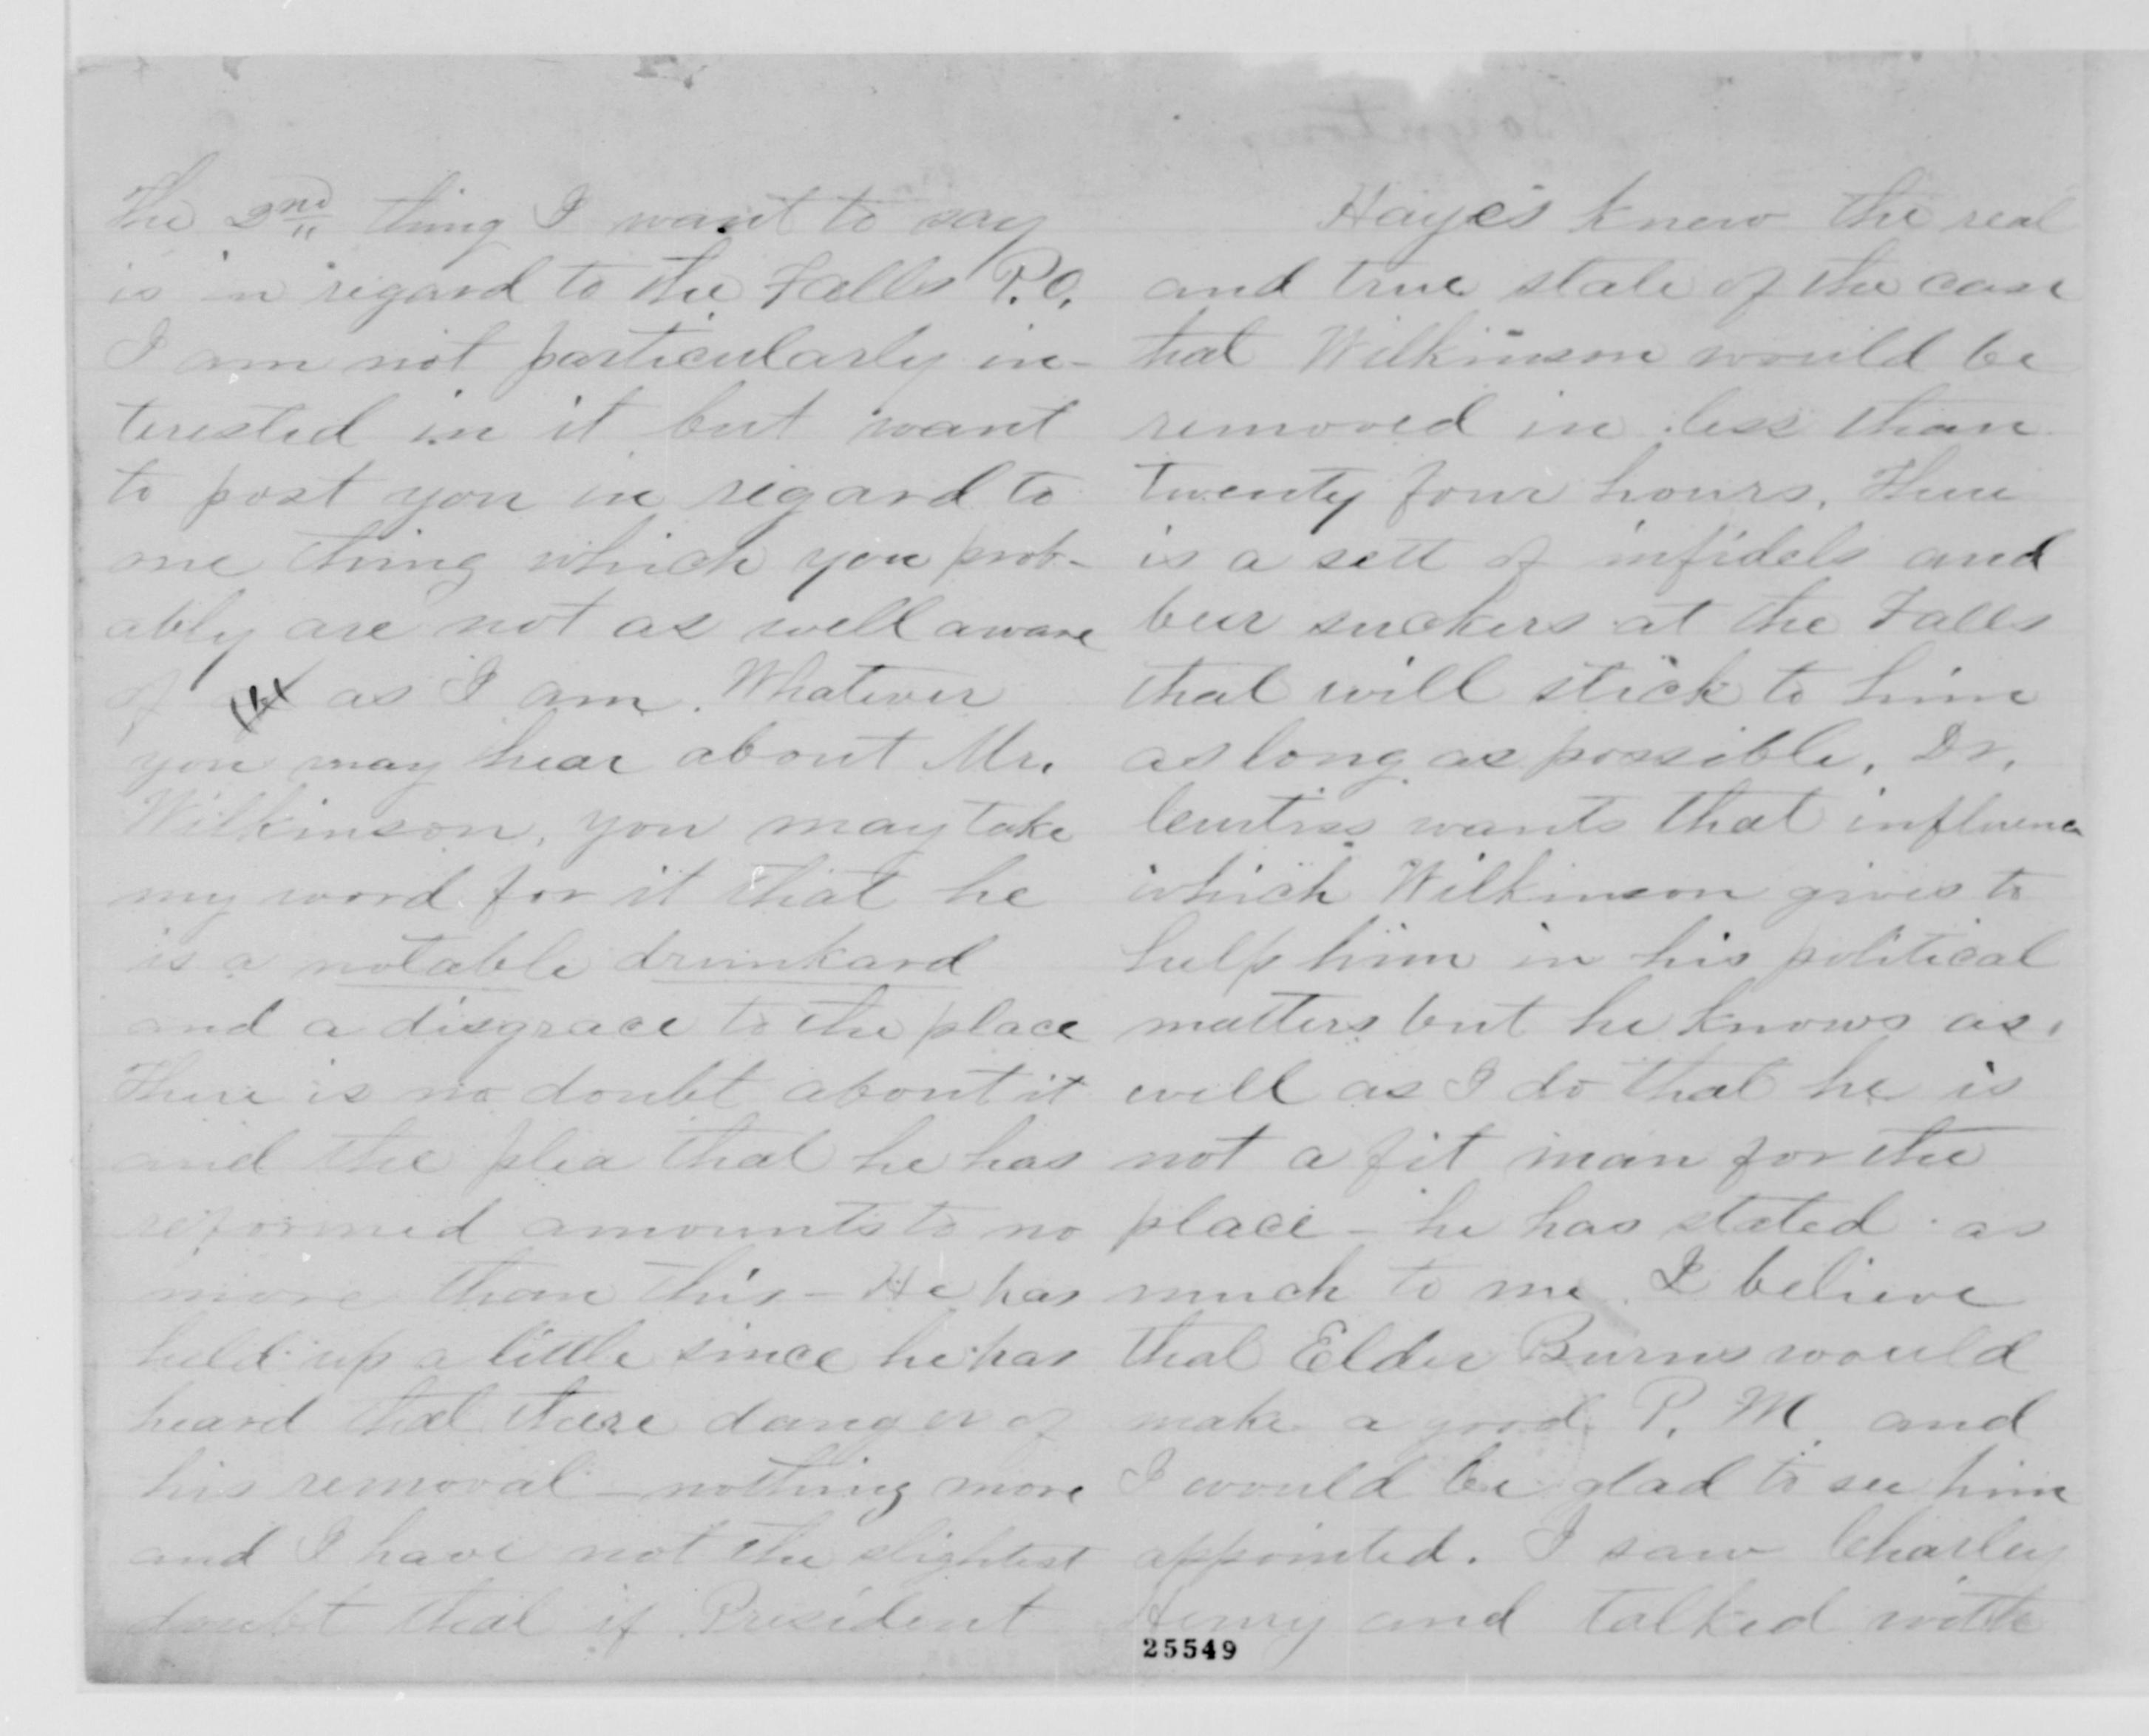 The 2nd thing I want to say
is in regard to the Falls P.O.
I am not particularly in-
terested in it but want
to post you in regard to
one thing which you prob-
ably are not as well aware
of as I am. Whatever
you may hear about Mr.
Wilkinson, you may take
my word for it that he
is a notable drunkard
and a disgrace to the place
There is no doubt about it
and the plea that he has
reformed amounts to no
more than this - He has
held up a little since he has
heard that there danger of
his removal - nothing more
and I have not the slightest
doubt that if President
Hayes knew the real
and true state of the case
that Wilkinson would be
removed in less than
twenty four hours. There
is a sett of infidels and
beer suckers at the Falls
that will stick to him
as long as possible. Dr.
Curtiss wants that influence
which Wilkinson gives to
help him in his political
matters but he knows as
well as I do that he is
not a fit man for the
place - he has stated as
much to me. I believe
that Elder Burns would
make a good P. M. and
I would be glad to see him
appointed. I saw Charley
Henry and talked with
25549